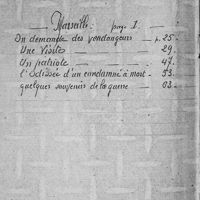 Marseille. page 1.
On demande des vendangeurs — p. 25.
Une Visite — 29.
Un patriote — 47.
l'Odissée d'un condamné à mort - 53.
quelques souvenirs de la guerre — 63.